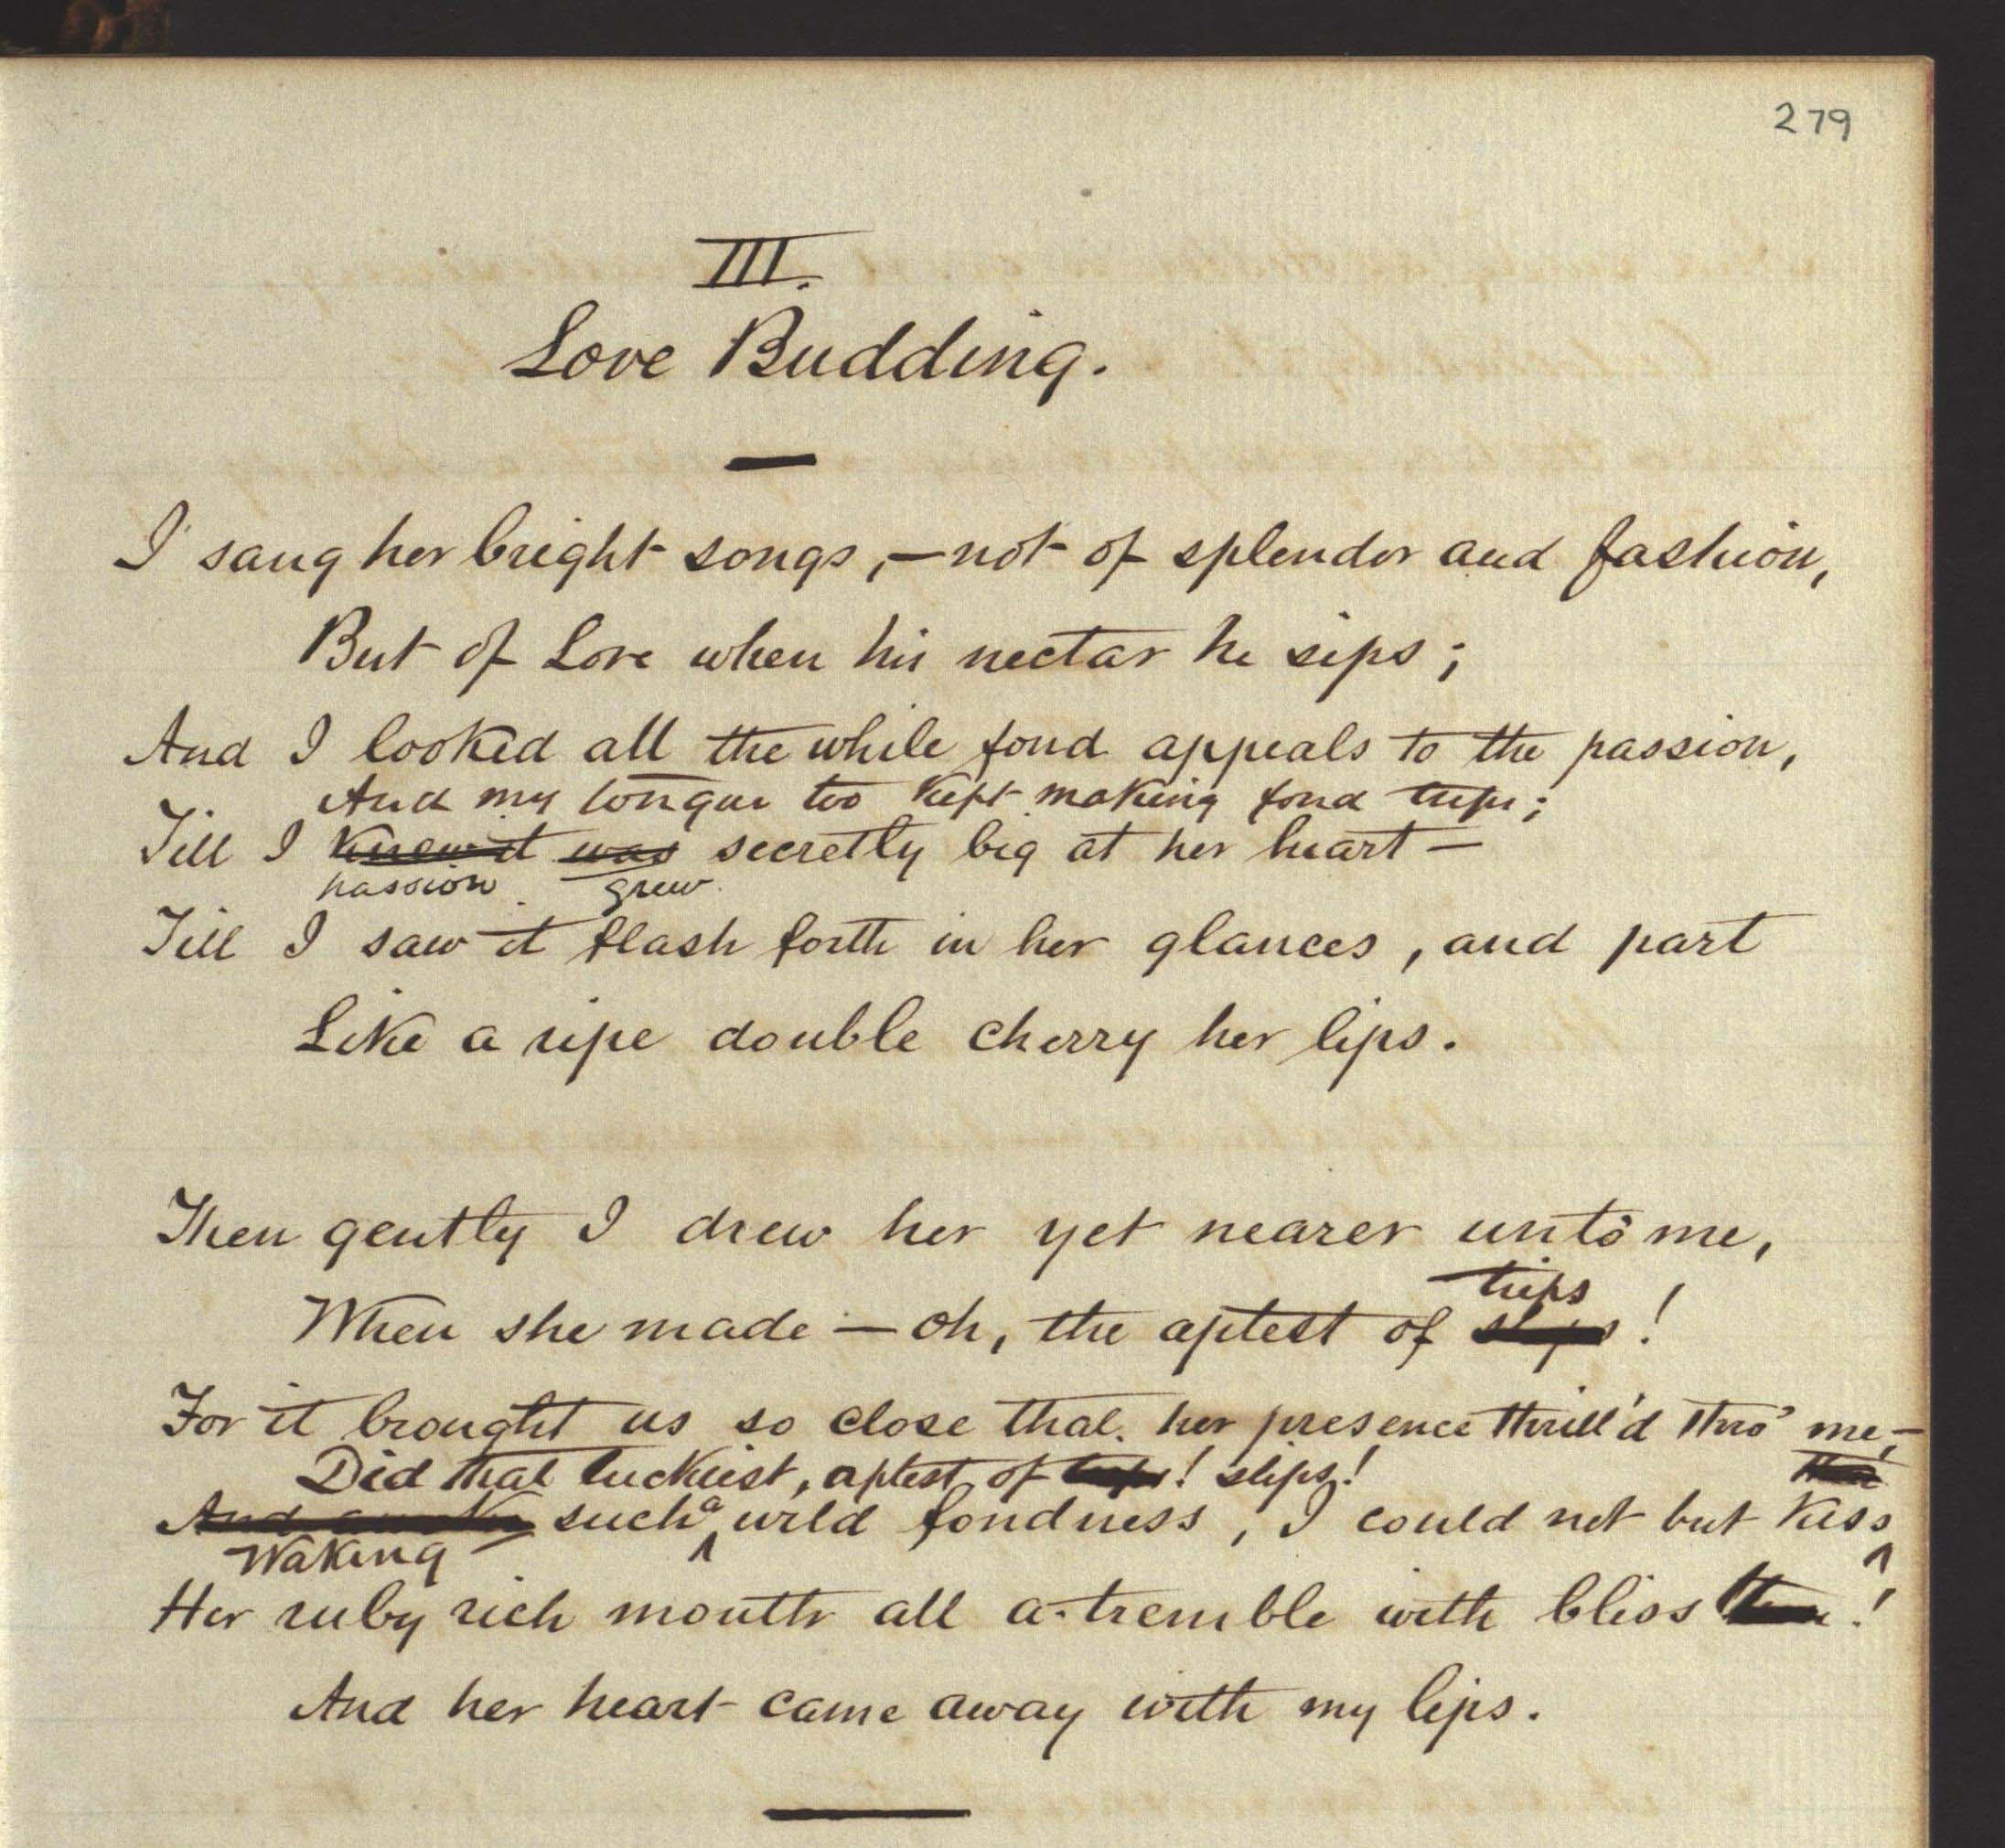 279
III.
Love Budding.
I sang her bright songs, — not of splendor and fashion,
But of Love when his nectar he sips;
And I looked all the while fond appeals to the passion,
And my tongue too kept making fond trips;
Till I knew it was secretly big at her heart —
passion grew
Till I saw it flash forth in her glances, and part
Like a ripe double cherry her lips.
Then gently I drew her yet nearer unto me,
trips
When she made — oh, the aptest of slips!
For it brought us so close that her presence thrill'd thro' me, —
Did that luckiest, aptest, of trips! slips!
And such a wild fondness, I could not but kiss
Waking
Her ruby rich mouth all a-tremble with bliss !
And her heart came away with my lips.